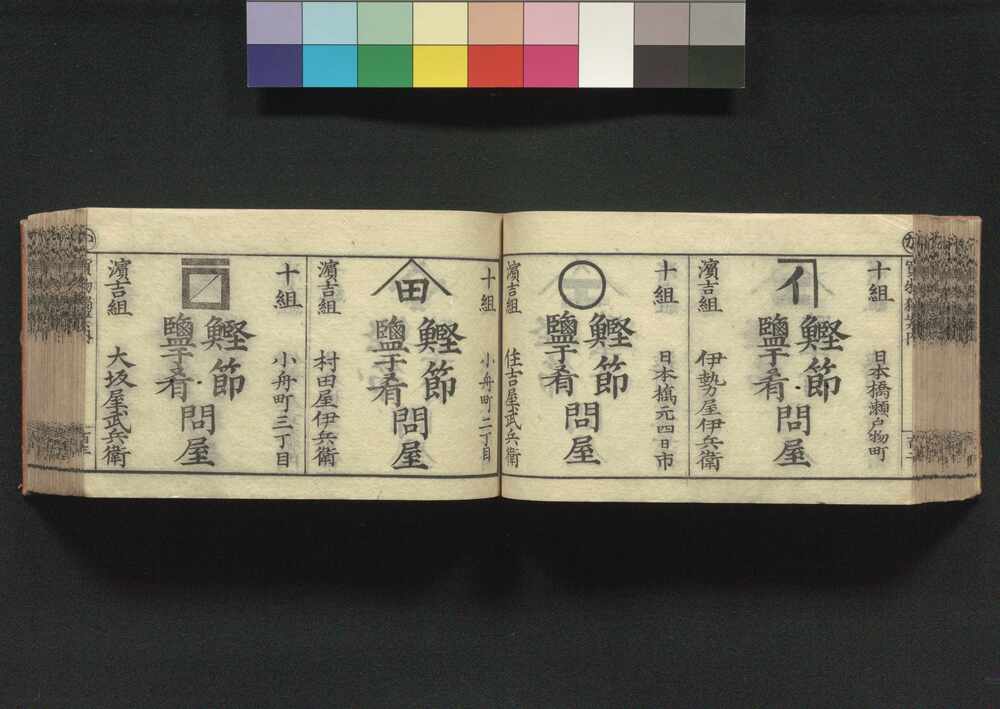 十組
日本橋瀬戸物町
イ
鰹節
鹽干肴
問屋
濵吉組
伊勢屋伊兵衛
十組
日本橋元四日市
鰹節
鹽干肴
問屋
濵吉組
住吉屋武兵衛
十組
小舟町二丁目
田
鰹節
鹽干肴
問屋
濵吉組
村田屋伊兵衛
十組
小舟町三丁目
鰹節
鹽干肴
問屋
濵吉組
大坂屋武兵衛